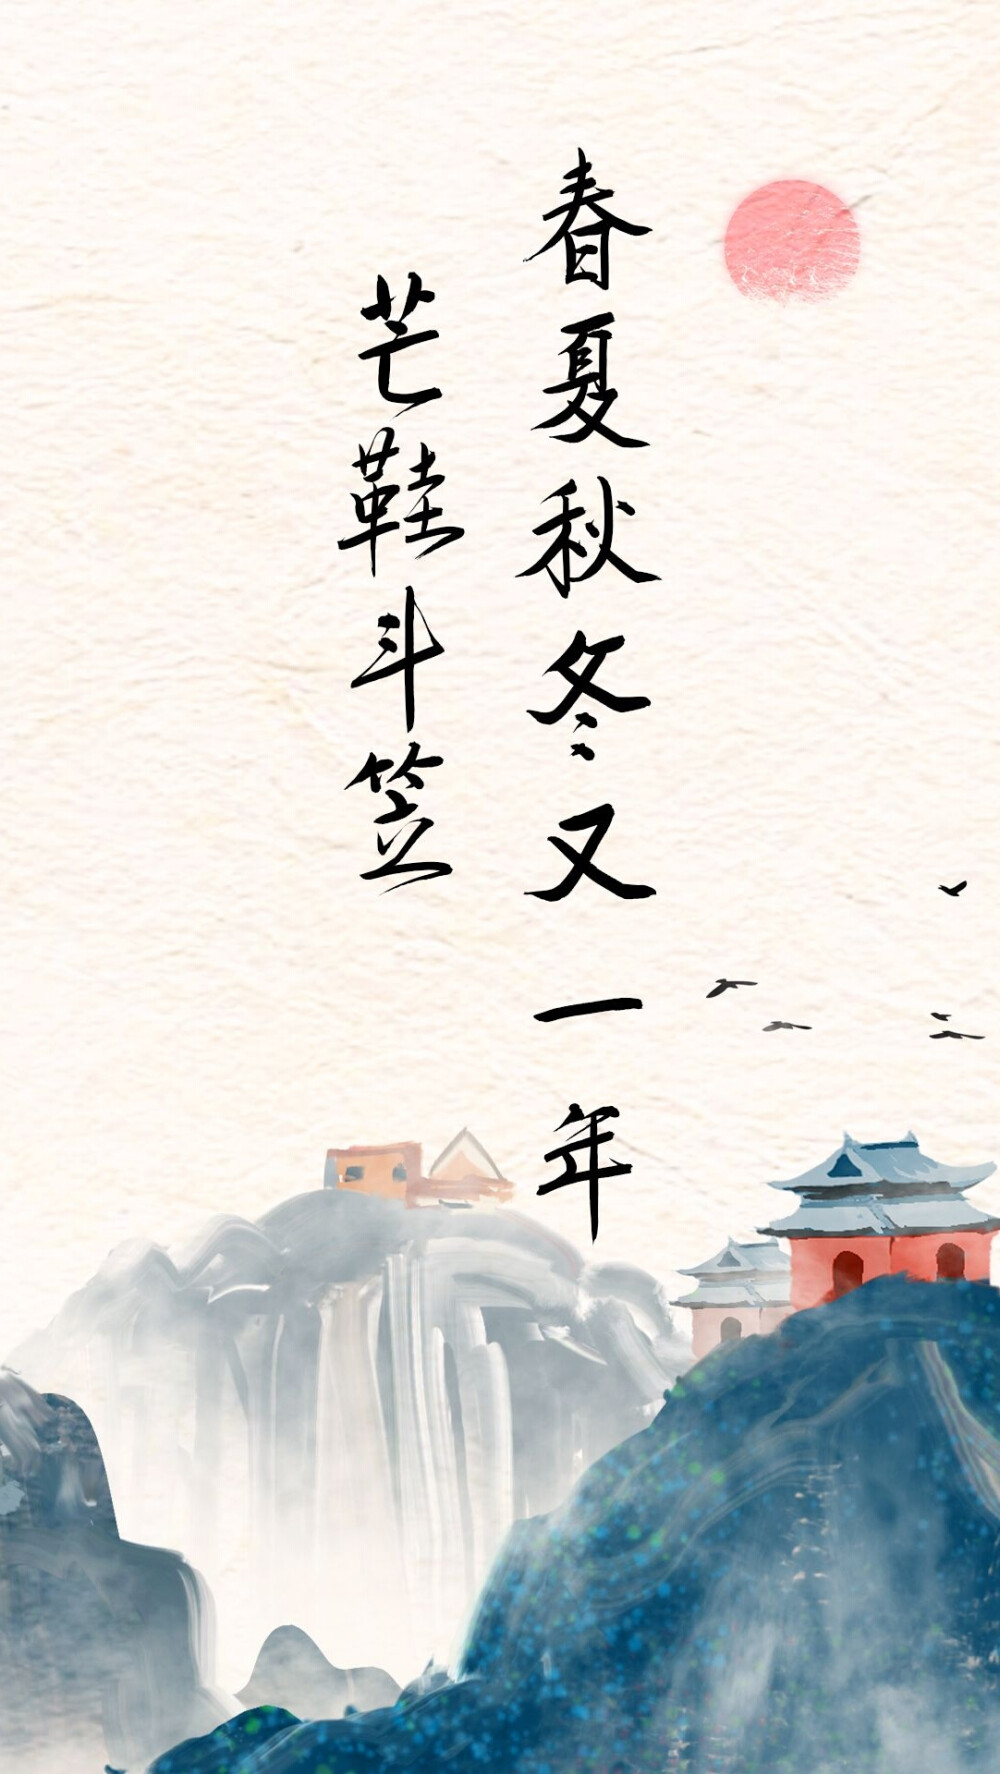 春夏秋冬又一年
芒鞋斗笠